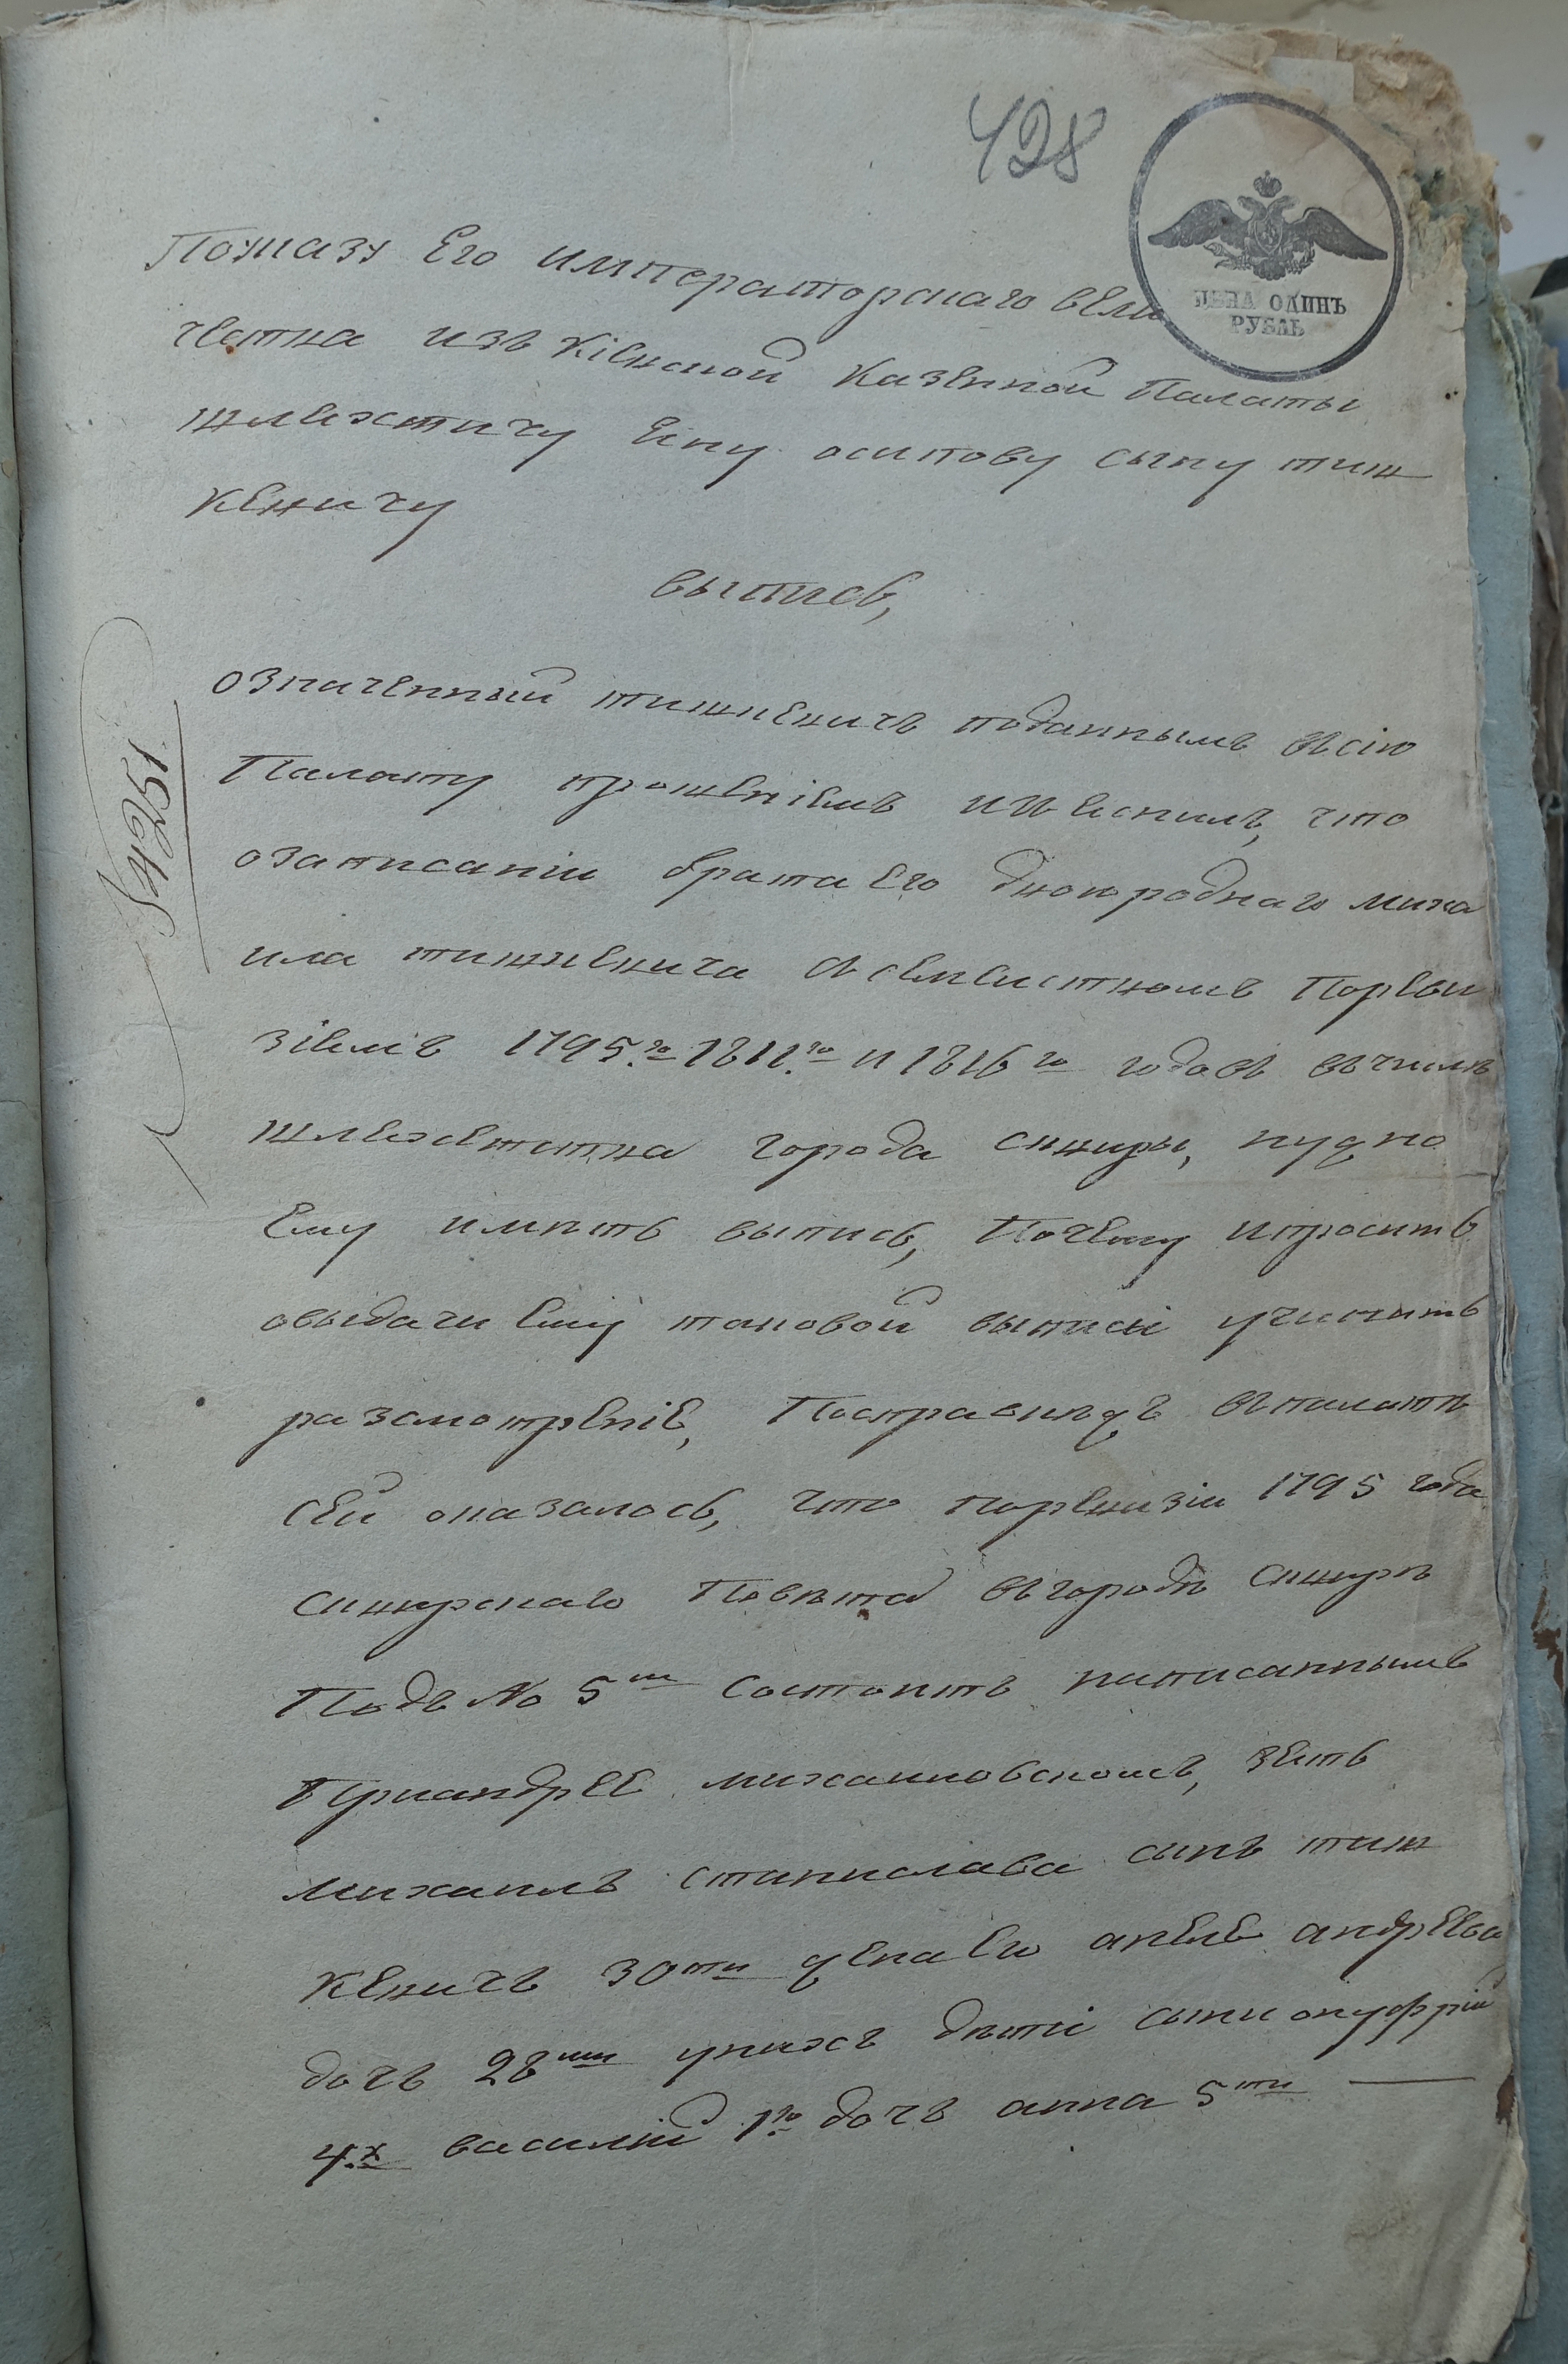 428
ЦЕНА ОДИНЪ
РУБЛЬ
Поуказу Его императорскаго вели
чества изъ Кіевской Казенной Палаты
шляхтичу осипову сыну тиш
кевичу
выпись,
означенный тишкевичъ поданнымъ въсію
Палату прошеніемъ что
озаписаніи брата Его двоюроднаго миха
ила тишкевича Порѣви
зіямъ 1795.го 1811.го и 1816го годовъ вчислѣ
шляхетства города сквиры, нужно
Ему имѣть выпись, Почему ипроситъ
овыдачи Ему таковой выписи учинить
разсмотреніе, Посправкѣ въпалатѣ
сей оказалось, что поревизіи 1795 года
сквирскаго Повѣта вгородѣ сквирѣ
Подъ No 5м состоитъ написаннымъ
Приандрее михаиловскомъ, зять
михаилъ станислава сынъ тиш
кевичъ 30ти жена Его андреева
дочь 28ми унихъ дѣти сыни онуфрій
4.х василій 1го дочь анна 5ти
14251